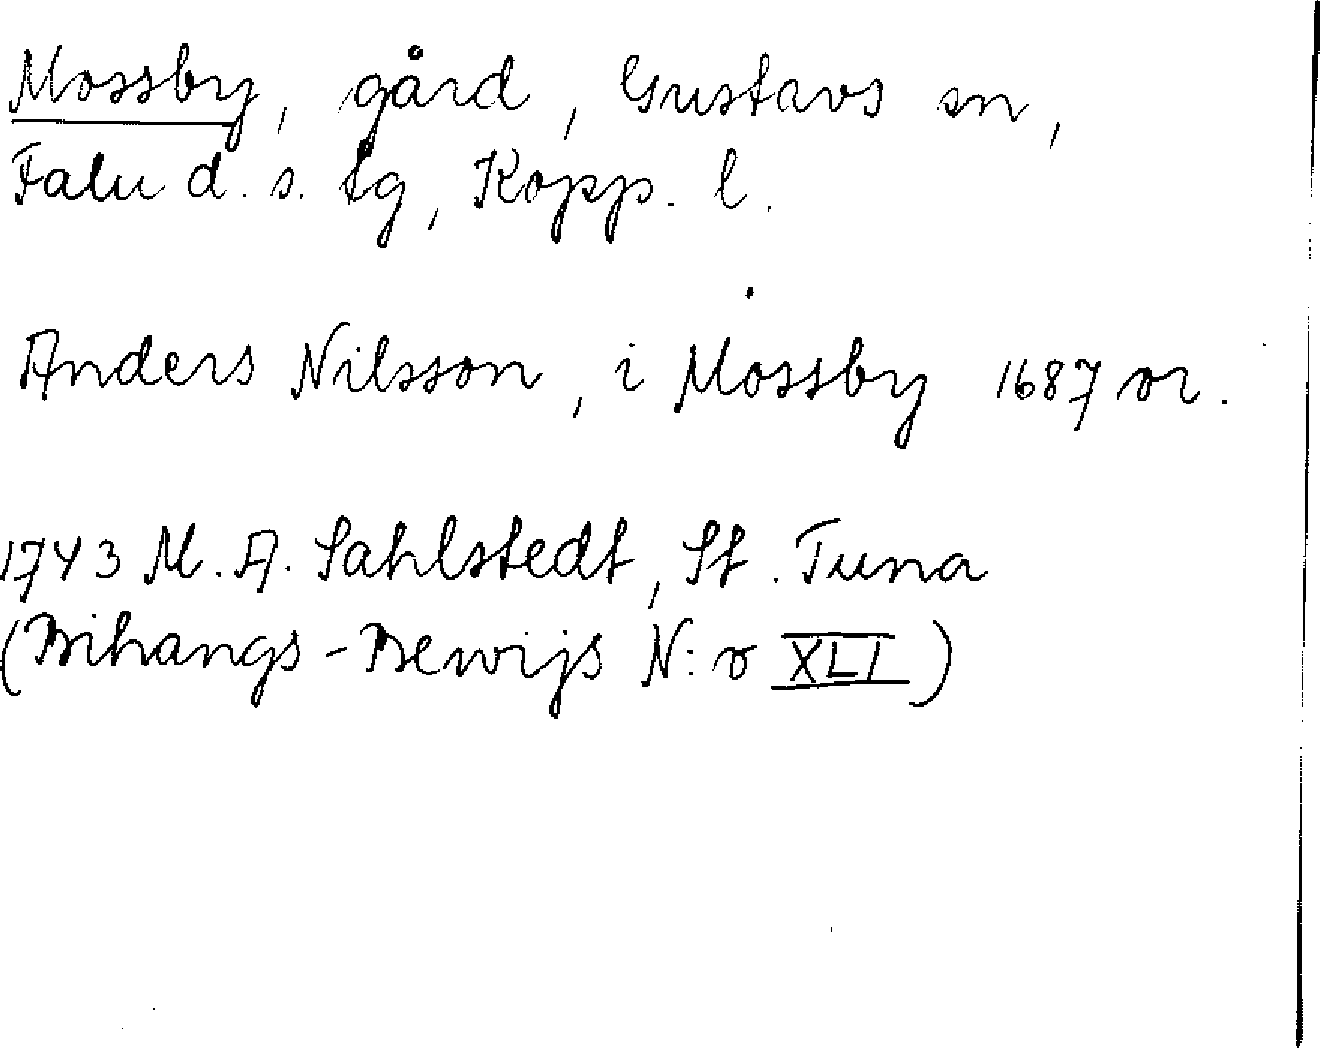 Mossby, gård, Gustavs sn,
Falu d. s. tg, Kopp. l.
Anders Nilsson, i Mossby 1687 or.
1743 M. A. Sahlstedt, St. Tuna
(Bihangs-Bewijs N:o XLI)